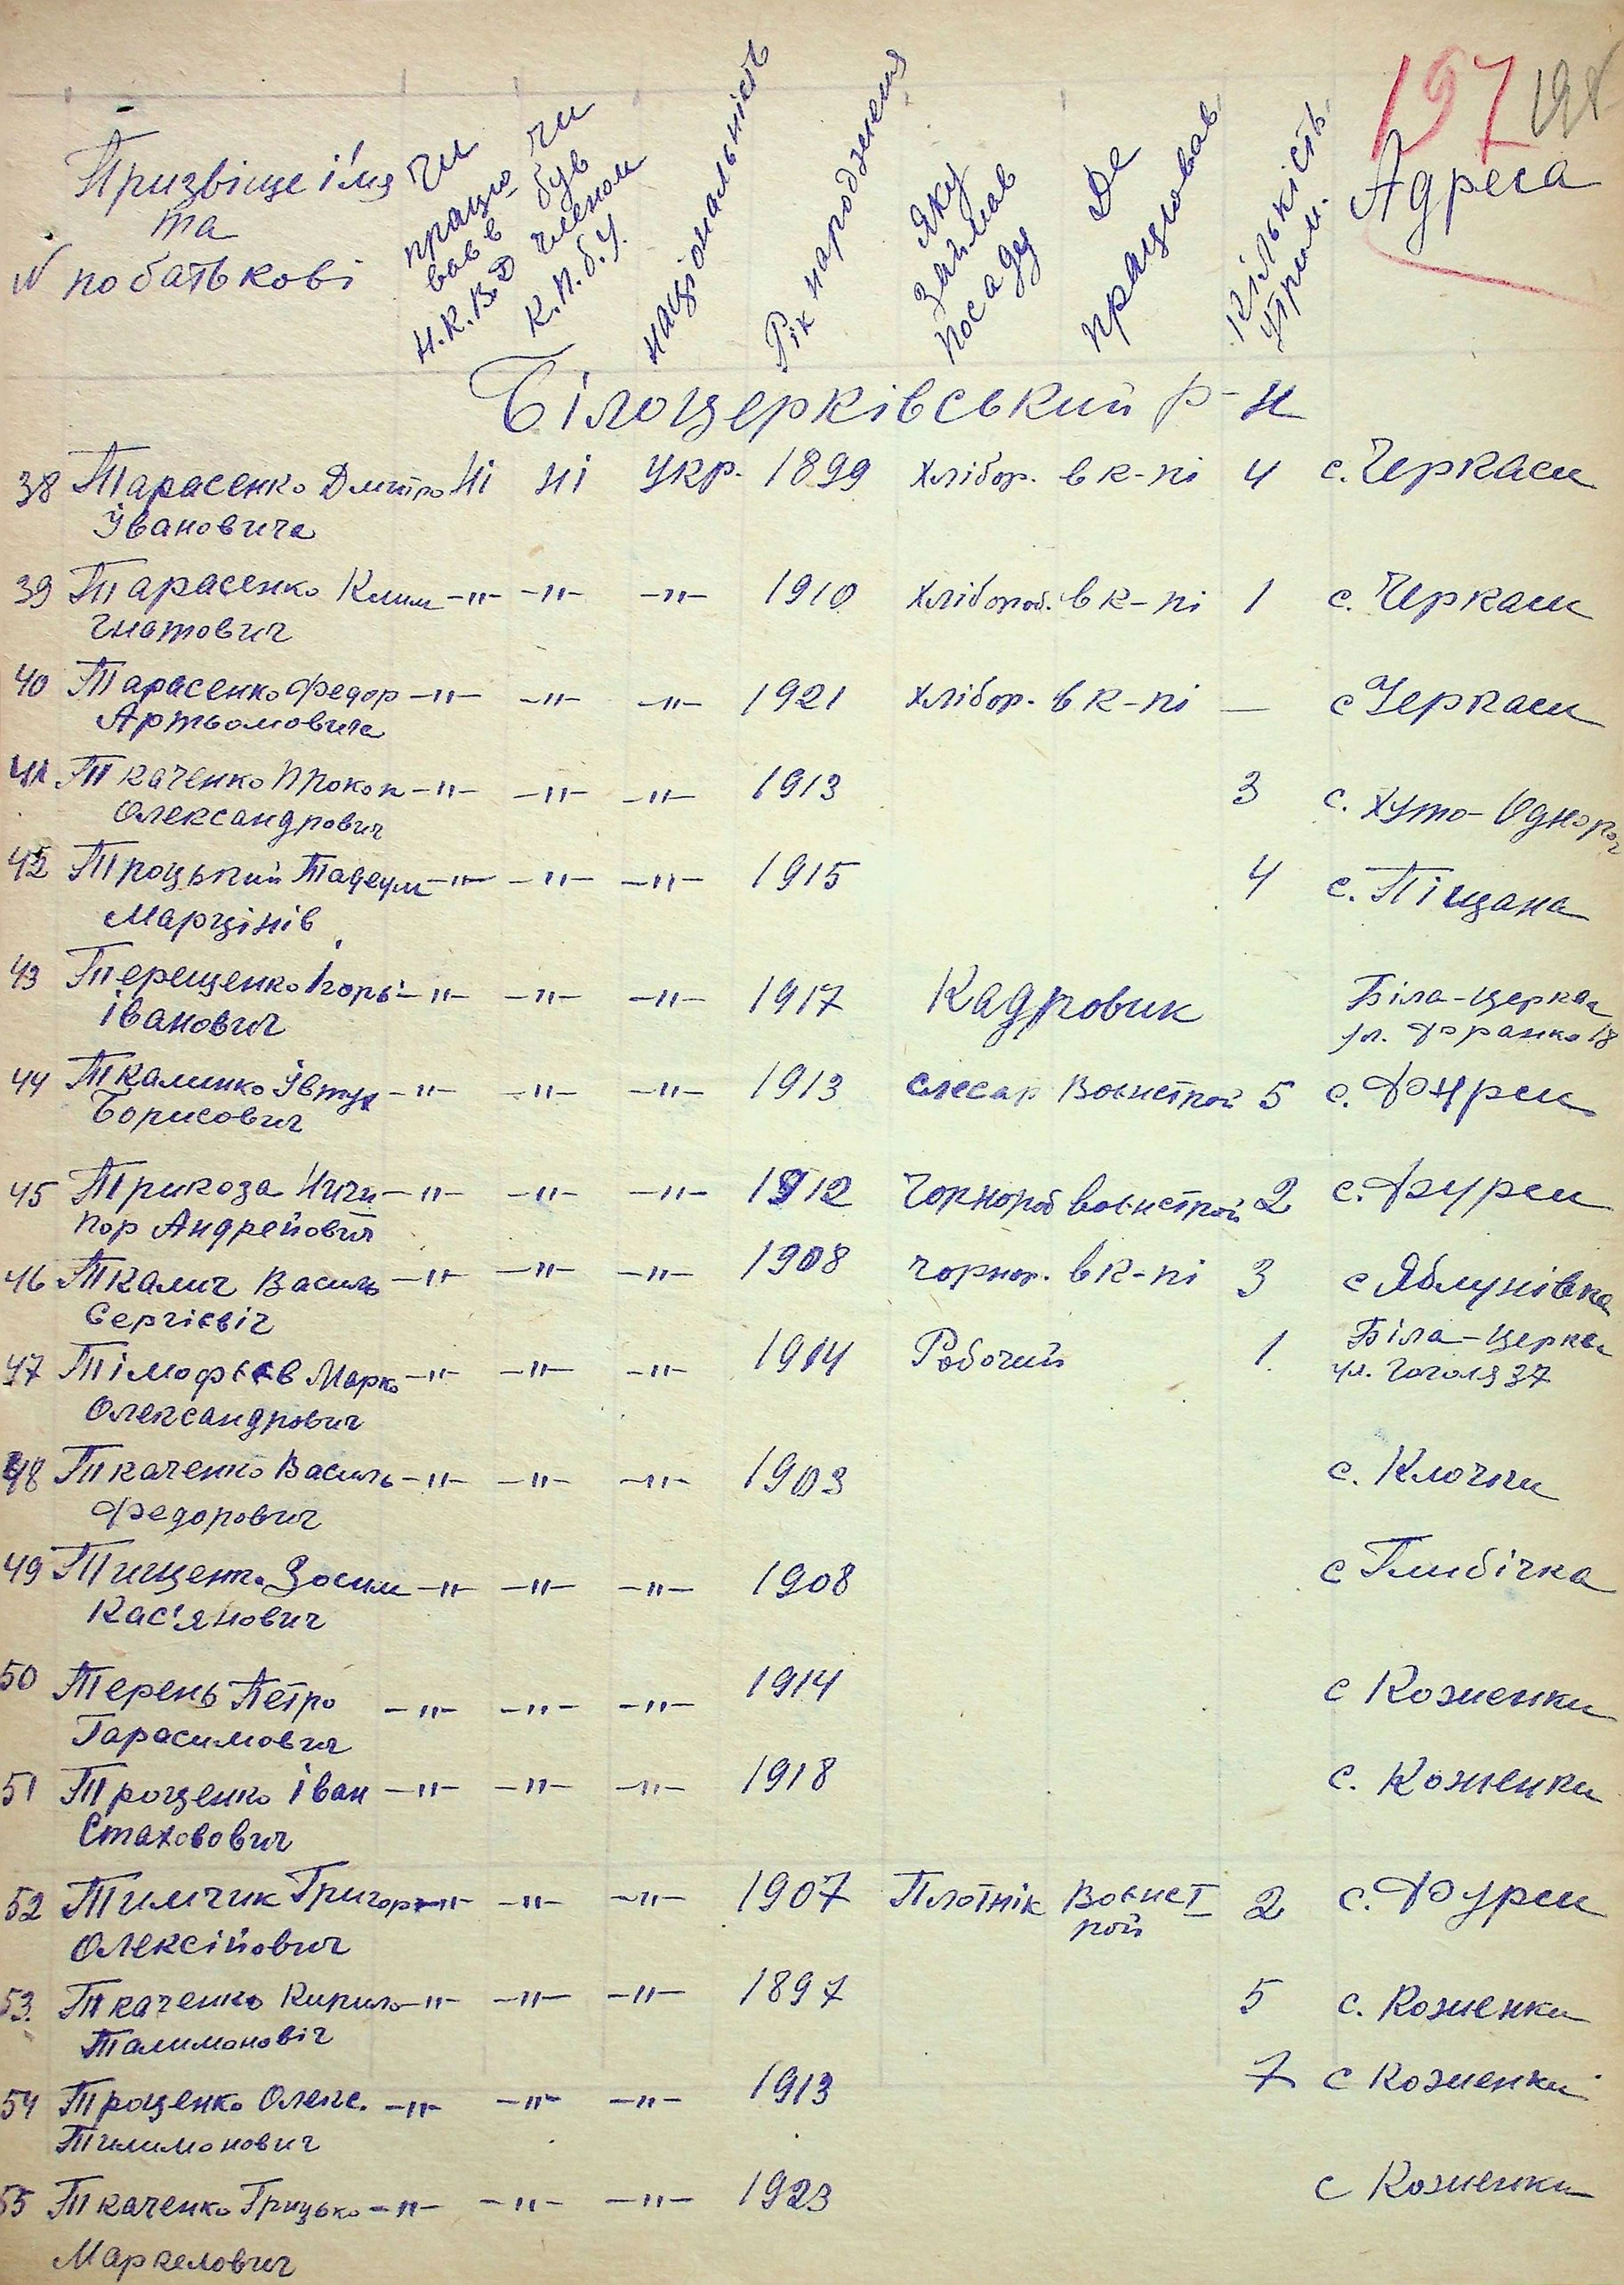 197 198
№ Призвіще ім'я та по батькові
Чи працював в Н.К.В.Д
чи був членом К.П.б.У.
Національність
Рік народження
Яку займав посаду
Де працював
Кількість утрим.
Адреса
Білоцерківський р-н
38 Тарасенко Дмитро Ні ні укр. 1899 хлібор. в к-пі 4 с. Черкаси
Івановича
39 Тарасенко Клим -"- -"- -"- 1910 хлібороб. в к-пі 1 с. Черкаси
Гнатович
40 Тарасенко Федор -"- -"- -"- 1921 хлібор. в к-пі — с Черкаси
Артьомовича
41 Ткаченко Прокоп -"- -"- -"- 1913 3 с. Хуто-Однорог
Олександрович
42 Троцький Тадеуш -"- -"- -"- 1915 4 с. Піщана
Марцінів
43 Терещенко Ігорь -"- -"- -"- 1917 Кадровик Біла-Церква
Іванович ул. Франко 18
44 Ткаминко Івтух -"- -"- -"- 1913 слесар Воєнстрой 5 с. Фурси
Борисович
45 Трикоза Ничи- -"- -"- -"- 1912 Чорнороб воєнстрой 2 с. Фурси
пор Андрейович
46 Ткалич Василь -"- -"- -"- 1908 чорнор. в к-пі 3 с Яблунівка
Сергієвіч
47 Тімофєєв Марко -"- -"- -"- 1914 Робочий 1. Біла-Церква
Олександрович ул. Гоголя 37
48 Ткаченко Василь -"- -"- -"- 1903 с. Клочки
Федорович
49 Тищенко Зосим -"- -"- -"- 1908 с Глибічка
Кас'янович
50 Терень Петро -"- -"- -"- 1914 с Коженки
Гарасимович
51 Троценко Іван -"- -"- -"- 1918 с. Коженки
Стахович
52 Тимчик Григор -"- -"- -"- 1907 Плотнік Воєнст 2 с. Фурси
Олексійович рой
53. Ткаченко Кирило -"- -"- -"- 1897 5 с. Коженки
Талимановіч
54 Троценко Олекс. -"- -"- -"- 1913 7 с Коженки
Тилимонович
55 Ткаченко Грицько -"- -"- -"- 1923 с Коженки
Маркелович